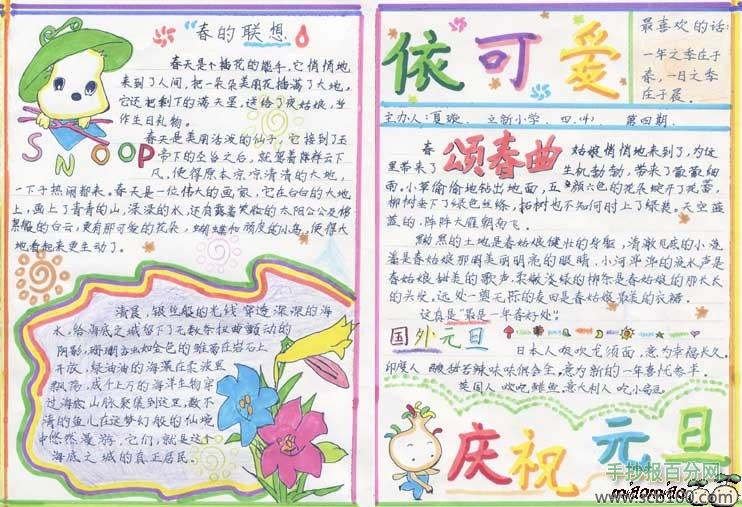 "春的联想
春天是个插花的能手，它悄悄地
来到了人间，把一朵朵美丽花插满了大地。
它还把剩下的满天星，送给了夜姑娘，当
作生日礼物。
春天是美丽活泼的仙子，它接到玉
帝下的圣旨之后，就驾着降祥云下
凡，使得原本凉凉清清的大地，
一下子热闹起来。春天是一位伟大的画家，它在白白的大地
上，画上了青青的山，深深的水，还有露着笑脸的太阳公公及
的白云，更有那可爱的花朵，蝴蝶和顽皮的小鸟，使得大
地看起来更生动了。
SNOOP
清晨，银丝般的光线穿透深深的海
水，给海底之城留下了无数条扭曲颤动的
阴影，珊瑚如金色的雏菊在岩石上
开放，绿油油的海藻在柔波里
飘荡，成千上万的海洋生物穿
过海底山脉聚集到这里，数不
清的鱼儿在这梦幻般的仙境
中悠然漫游，它们，就是这个
海底之城的真正居民。
依可爱
最喜欢的话：
一年之季在于
春，一日之季
在于晨。
主办人：夏璇、 立新小学、 四.(4) 第四期.
颂春曲
春 姑娘悄悄地来到了，为这
里带来了 生机勃勃，带来了微微细
雨。小草偷偷地钻出地面，五颜六色的花朵绽开了花蕾，
柳树垂下了绿色丝绦，柘树也不知何时上了绿装。天空蓝
蓝的，阵阵大雁朝南飞。
黝黑的土地是春姑娘健壮的身躯，清澈见底的小流
溪是春姑娘那明美丽明亮的眼睛，小河平淙的流水声是
春姑娘甜美的歌声，柔嫩淡绿的柳条是春姑娘的那长长
的头发，远处一望无际的麦田是春姑娘最美的衣裙。
这真是"最是一年春好处"！
国外元旦
日本人喜欢吃龙须面，意为幸福长久。
印度人 酸甜苦辣味味俱会全，意为新的一年喜忧参半。
英国人 欢吃鲱鱼。意大利人 吃小扁豆。
庆祝元旦
手抄报百分网
www.scb100.com
milomilo